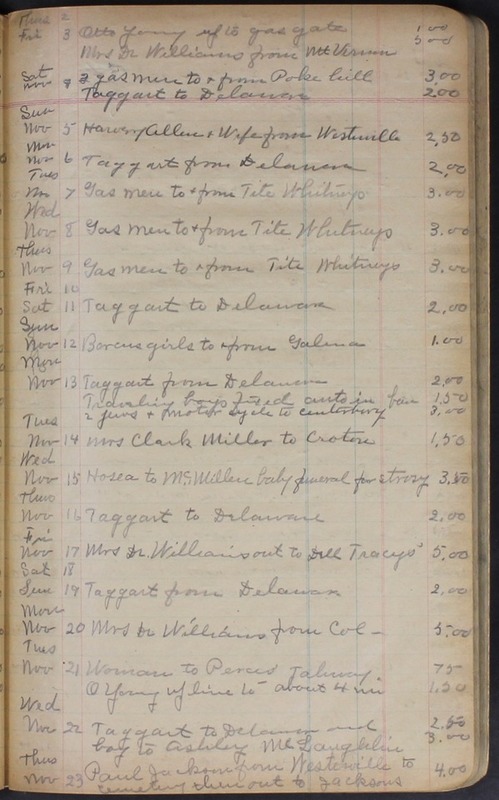 Thurs 2
Fri 3 Otto Young up to gas gate 1 00
Mrs Dr Williams from Mt Vernon 5 00
Sat
Nov 4 3 gas men to & from Poke hill 3.00
Taggart to Delaware 2.00
Sun
Nov 5 Harvey Allen & Wife from Westerville 2,50
Mon
Nov 6 Taggart from Delaware 2,00
Tues
Nov 7 Gas men to & from Tite Whitneys 3.00
Wed
Nov 8 Gas men to & from Tite Whitneys 3.00
Thus
Nov 9 Gas men to & from Tite Whitneys 3.00
Fri 10
Sat 11 Taggart to Delaware 2,00
Sun
Nov 12 Barcus girls to & from Galena 1.00
Mon
Nov 13 Taggart from Delaware 2,00
Traveling boys fixed auto in barn 1.50
2 jews & motor cycle to centerburg 3,00
Tues
Nov 14 Mrs Clark Miller to Croton 1,50
Wed
Nov 15 Hosea to McMillen baby funeral for 3,50
Thus
Nov 16 Taggart to Delaware 2,00
Fri
Nov 17 Mrs Dr. Williams out to Dell Tracys' 5.00
Sat 18
Sun 19 Taggart from Delaware 2,00
Mon
Nov 20 Mrs Dr Williams from Col - 5.00
Tues
Nov 21 Woman to 75
O Young up line to about 4 mi 1.50
Wed
Nov 22 Taggart to Delaware and 2.50
boy to Ashley McLaughlin 3.00
Thus
Nov 23 Paul Jackson from Westerville to 4.00
cemetery then out to Jacksons